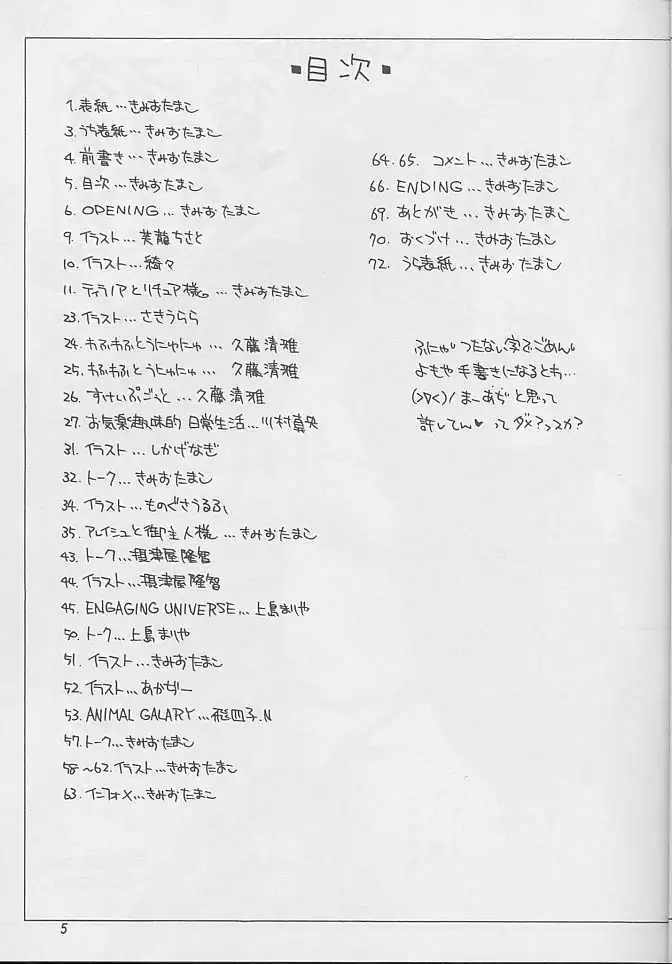 ▪目次▪
1. 表紙…きみおたまこ
3. うち表紙…きみおたまこ
4. 前書き…きみおたまこ
5. 目次…きみおたまこ
6. OPENING…きみおたまこ
9. イラスト…芙龍ちさと
10. イラスト…綺々
11. ティラノアとリチュア様。…きみおたまこ
23. イラスト…さきうらら
24. わふわふとうにゅにゅ…久藤清雅
25. わふわふとうにゅにゅ…久藤清雅
26. すけいぷごっと…久藤清雅
27. お気楽趣味的日常生活…川村真央
31. イラスト…しかげなぎ
32. トーク…きみおたまこ
34. イラスト…ものぐさうるふ
35. アレイシュと御主人様…きみおたまこ
43. トーク…摂津屋隆智
44. イラスト…摂津屋隆智
45. ENGAGING UNIVERSE…上島まりや
50. トーク…上島まりや
51. イラスト…きみおたまこ
52. イラスト…あかぢー
53. ANIMAL GALARY…飛四子.N
57. トーク…きみおたまこ
58〜62. イラスト…きみおたまこ
63. インフォメ…きみおたまこ
64.65. コメント…きみおたまこ
66. ENDING…きみおたまこ
69. あとがき…きみおたまこ
70. おくづけ…きみおたまこ
72. うら表紙…きみおたまこ
ふにゃ つたない字でごめん
よもや手書きになるとわ…
(>▽<)/ まーあぢと思って
許してん♥ってダメ?っスか?
5